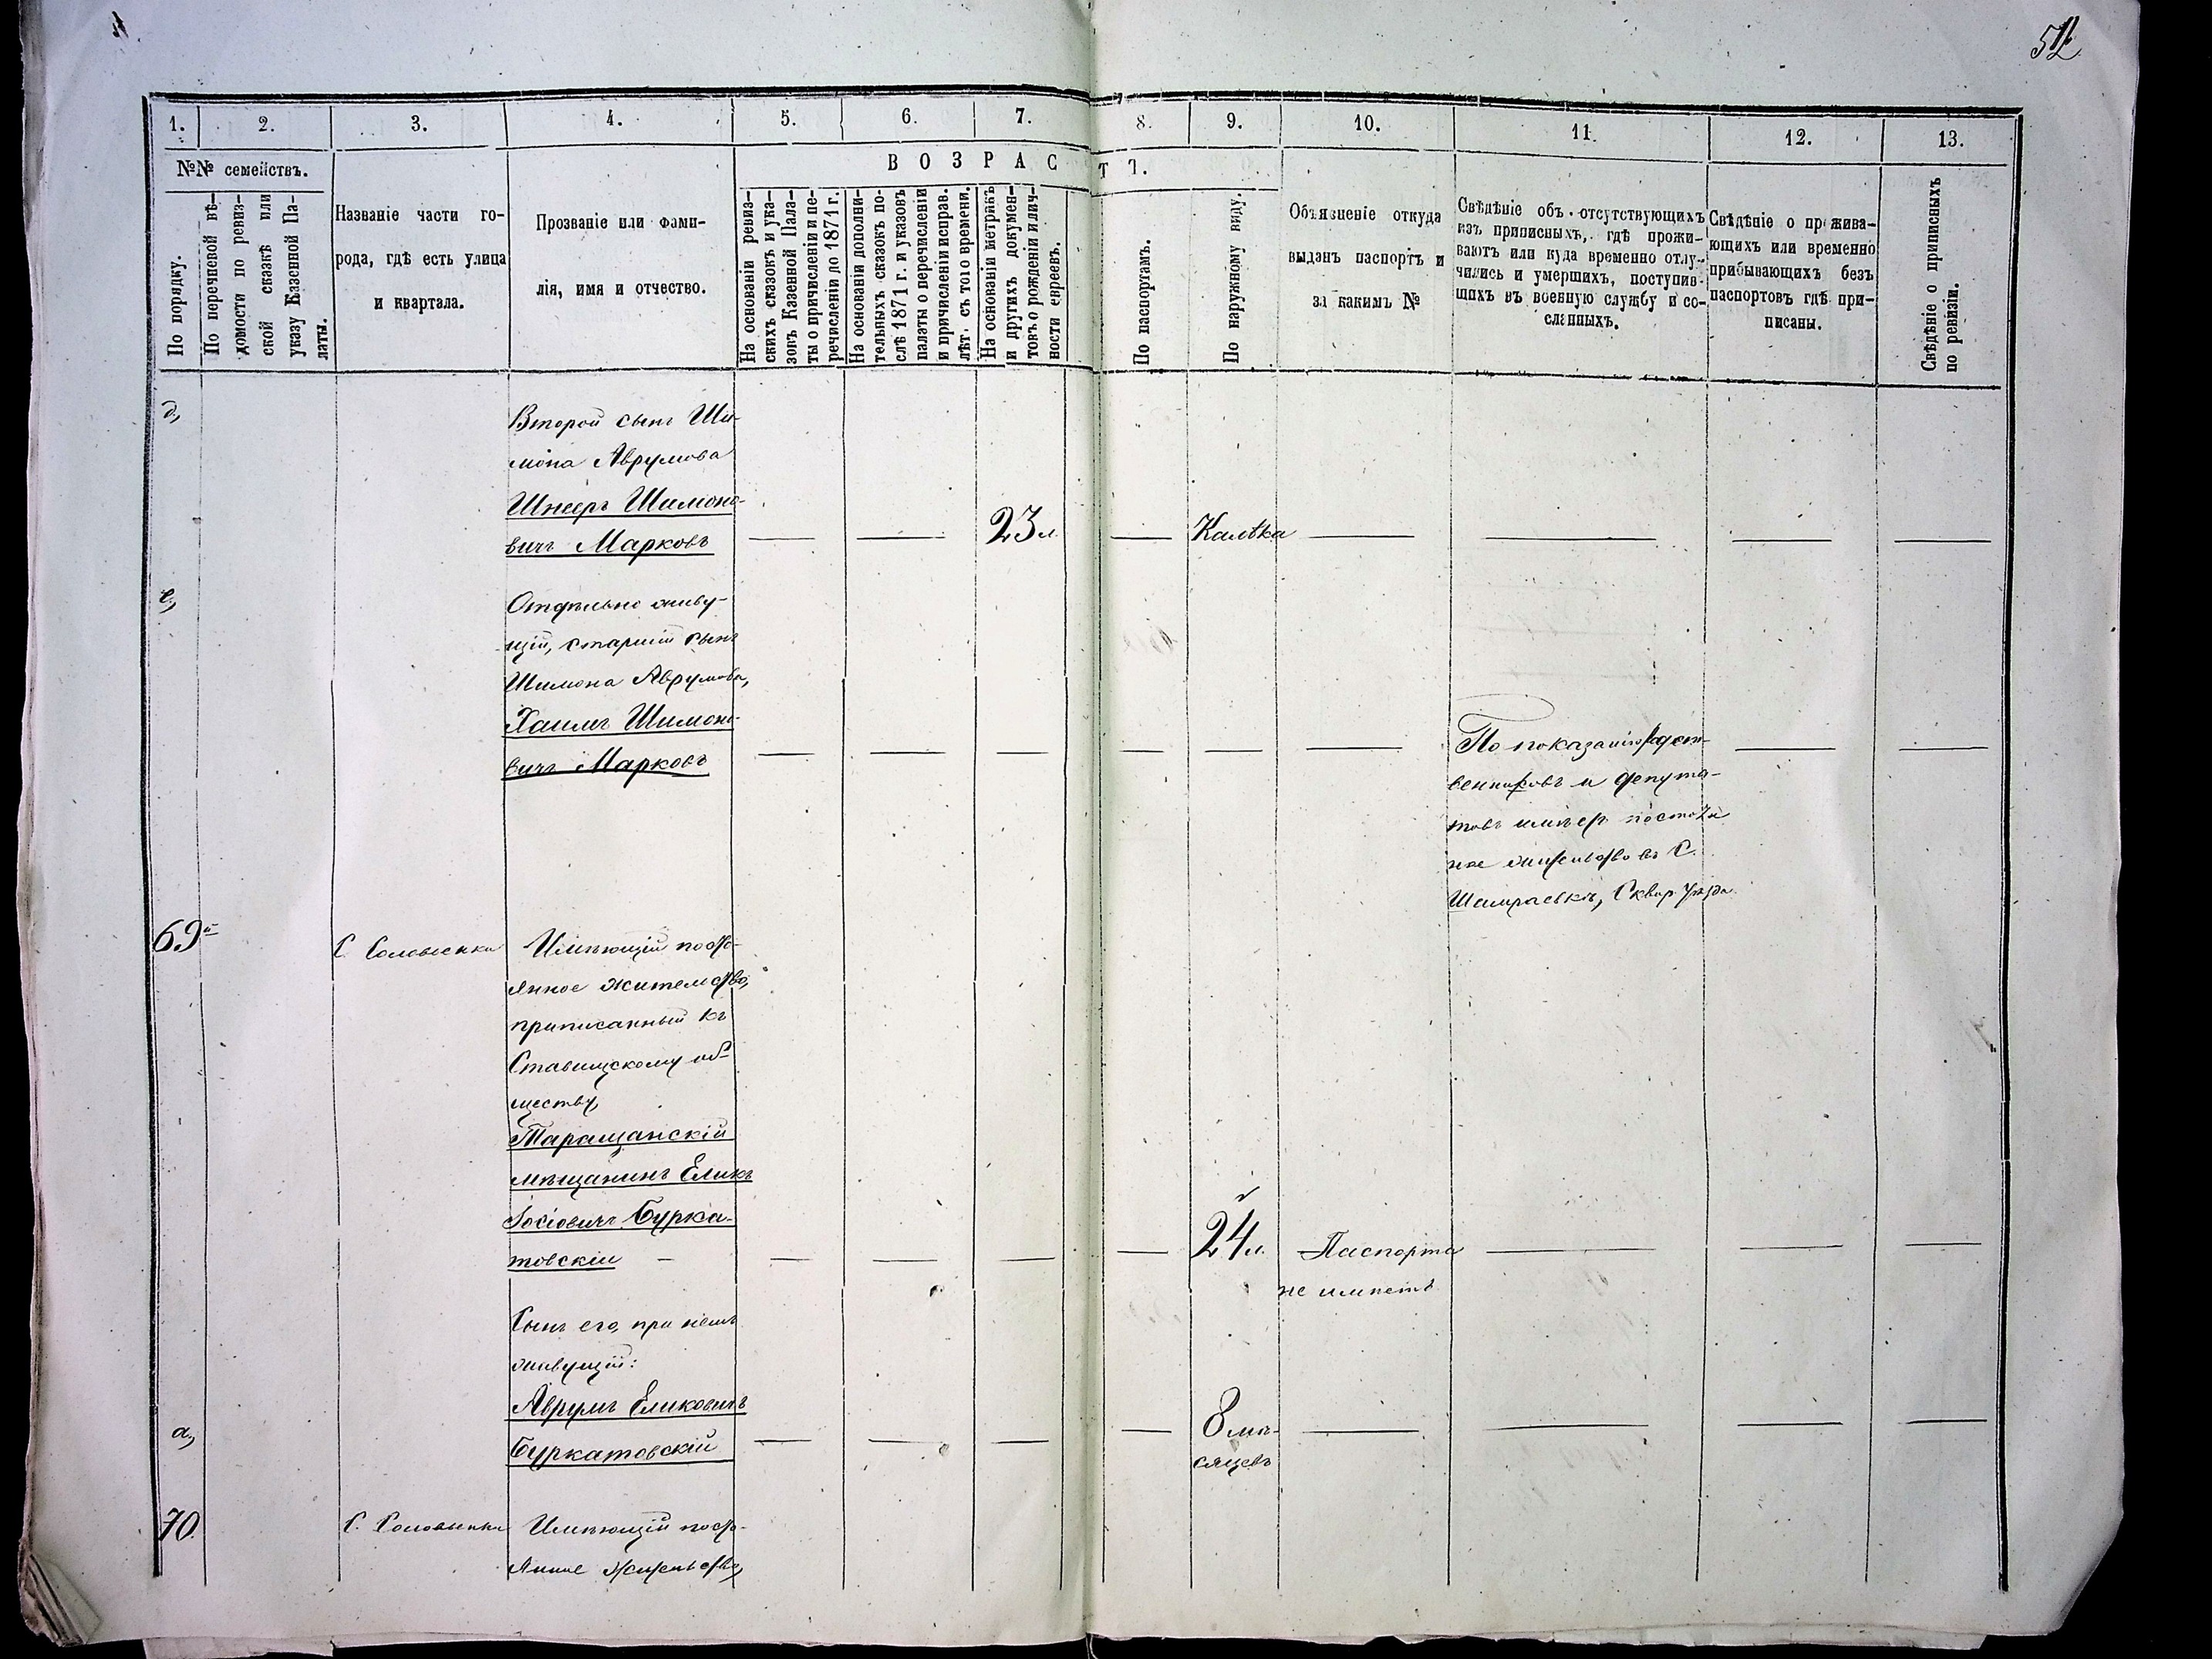 52
1. 2. 3. 4. 5. 6. 7. 8. 9. 10. 11. 12. 13.
№№ семействъ.
В О З Р А С Т Ъ.
По порядку.
По перечневой вѣ-
домости по ревиз-
ской сказкѣ или
указу Казенной Па-
латы.
Названіе части го-
рода, гдѣ есть улица
и квартала.
Прозваніе или фами-
лія, имя и отчество.
На основаніи ревиз-
скихъ сказокъ и ука-
зовъ Казенной Пала-
ты о причисленіи и пе-
речисленіи до 1871 г.
На основаніи дополни-
тельныхъ сказокъ по-
слѣ 1871 г. и указовъ
палаты о перечисленіи
и причисленіи исправ.
лѣт. съ того времени.
На основаніи метрикъ
и другихъ докумен-
товъ о рожденіи и лич-
ности евреевъ.
По паспортамъ.
По наружному виду.
Объясненіе откуда
выданъ паспортъ и
за какимъ №
Свѣдѣніе объ отсутствующихъ
изъ приписныхъ, гдѣ прожи-
ваютъ или куда временно отлу-
чились и умершихъ, поступив-
шихъ въ военную службу и со-
сланныхъ.
Свѣдѣніе о прожива-
ющихъ или временно
прибывающихъ безъ
паспортовъ гдѣ при-
писаны.
Свѣдѣніе о приписныхъ
по ревизіи.
д,
Второй сынъ Ши-
мона Аврумова
Шнееръ Шимоно-
вичъ Марковъ — — 23 л. — Калѣка — — — —
е,
Отдѣльно живу-
щій, старшій сынъ
Шимона Аврумова,
Хаимъ Шимоно-
вичъ Марковъ — — — — — — По показанію родст- — —
венниковъ и депута-
товъ имѣетъ постоян
ное жительство въ С.
Шамраевкѣ, Сквир. Уѣзда
69й С. Соловіевка Имѣющій посто-
янное жительство,
приписанный къ
Ставищскому об-
ществу,
Таращанскій
мѣщанинъ Еликъ
Іосіовичъ Бурка-
товскій — — — — — 24 л. Паспорта — — —
не имѣетъ
Сынъ его, при немъ
живущій:
Аврумъ Еликовичъ
а, Буркатовскій — — — — 8 мѣ- — — — —
сяцевъ
70. С. Соловіевка Имѣющій посто-
янное жительство,